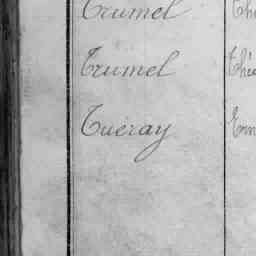 Trumel
Trumel
Tuéray